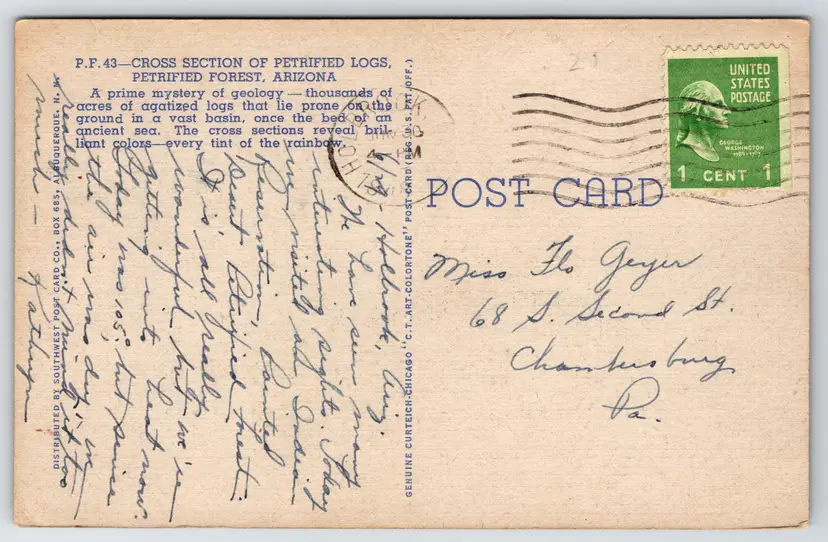 P.F. 43—CROSS SECTION OF PETRIFIED LOGS,
PETRIFIED FOREST, ARIZONA
A prime mystery of geology — thousands of
acres of agatized logs that lie prone on the
ground in a vast basin, once the bed of an
ancient sea. The cross sections reveal bril-
liant colors—every tint of the rainbow.
Holbrook, Ariz.
We have seen many
interesting sights. Today
we visited an Indian
Reservation, Painted
Desert Petrified Forest.
It is all really
wonderful but we're
getting into heat now.
Today was 105° but since
the air was dry we
really didn't mind it too
much —
Kathryn
DISTRIBUTED BY SOUTHWEST POST CARD CO., BOX 685, ALBUQUERQUE, N. M.
GENUINE CURTEICH-CHICAGO "C.T. ART-COLORTONE" POST CARD (REG. U.S. PAT. OFF.)
HOLBROOK
POST CARD
UNITED
STATES
POSTAGE
GEORGE
WASHINGTON
1789-1797
1 CENT 1
Miss Flo Geyer
68 S. Second St.
Chambersburg
Pa.